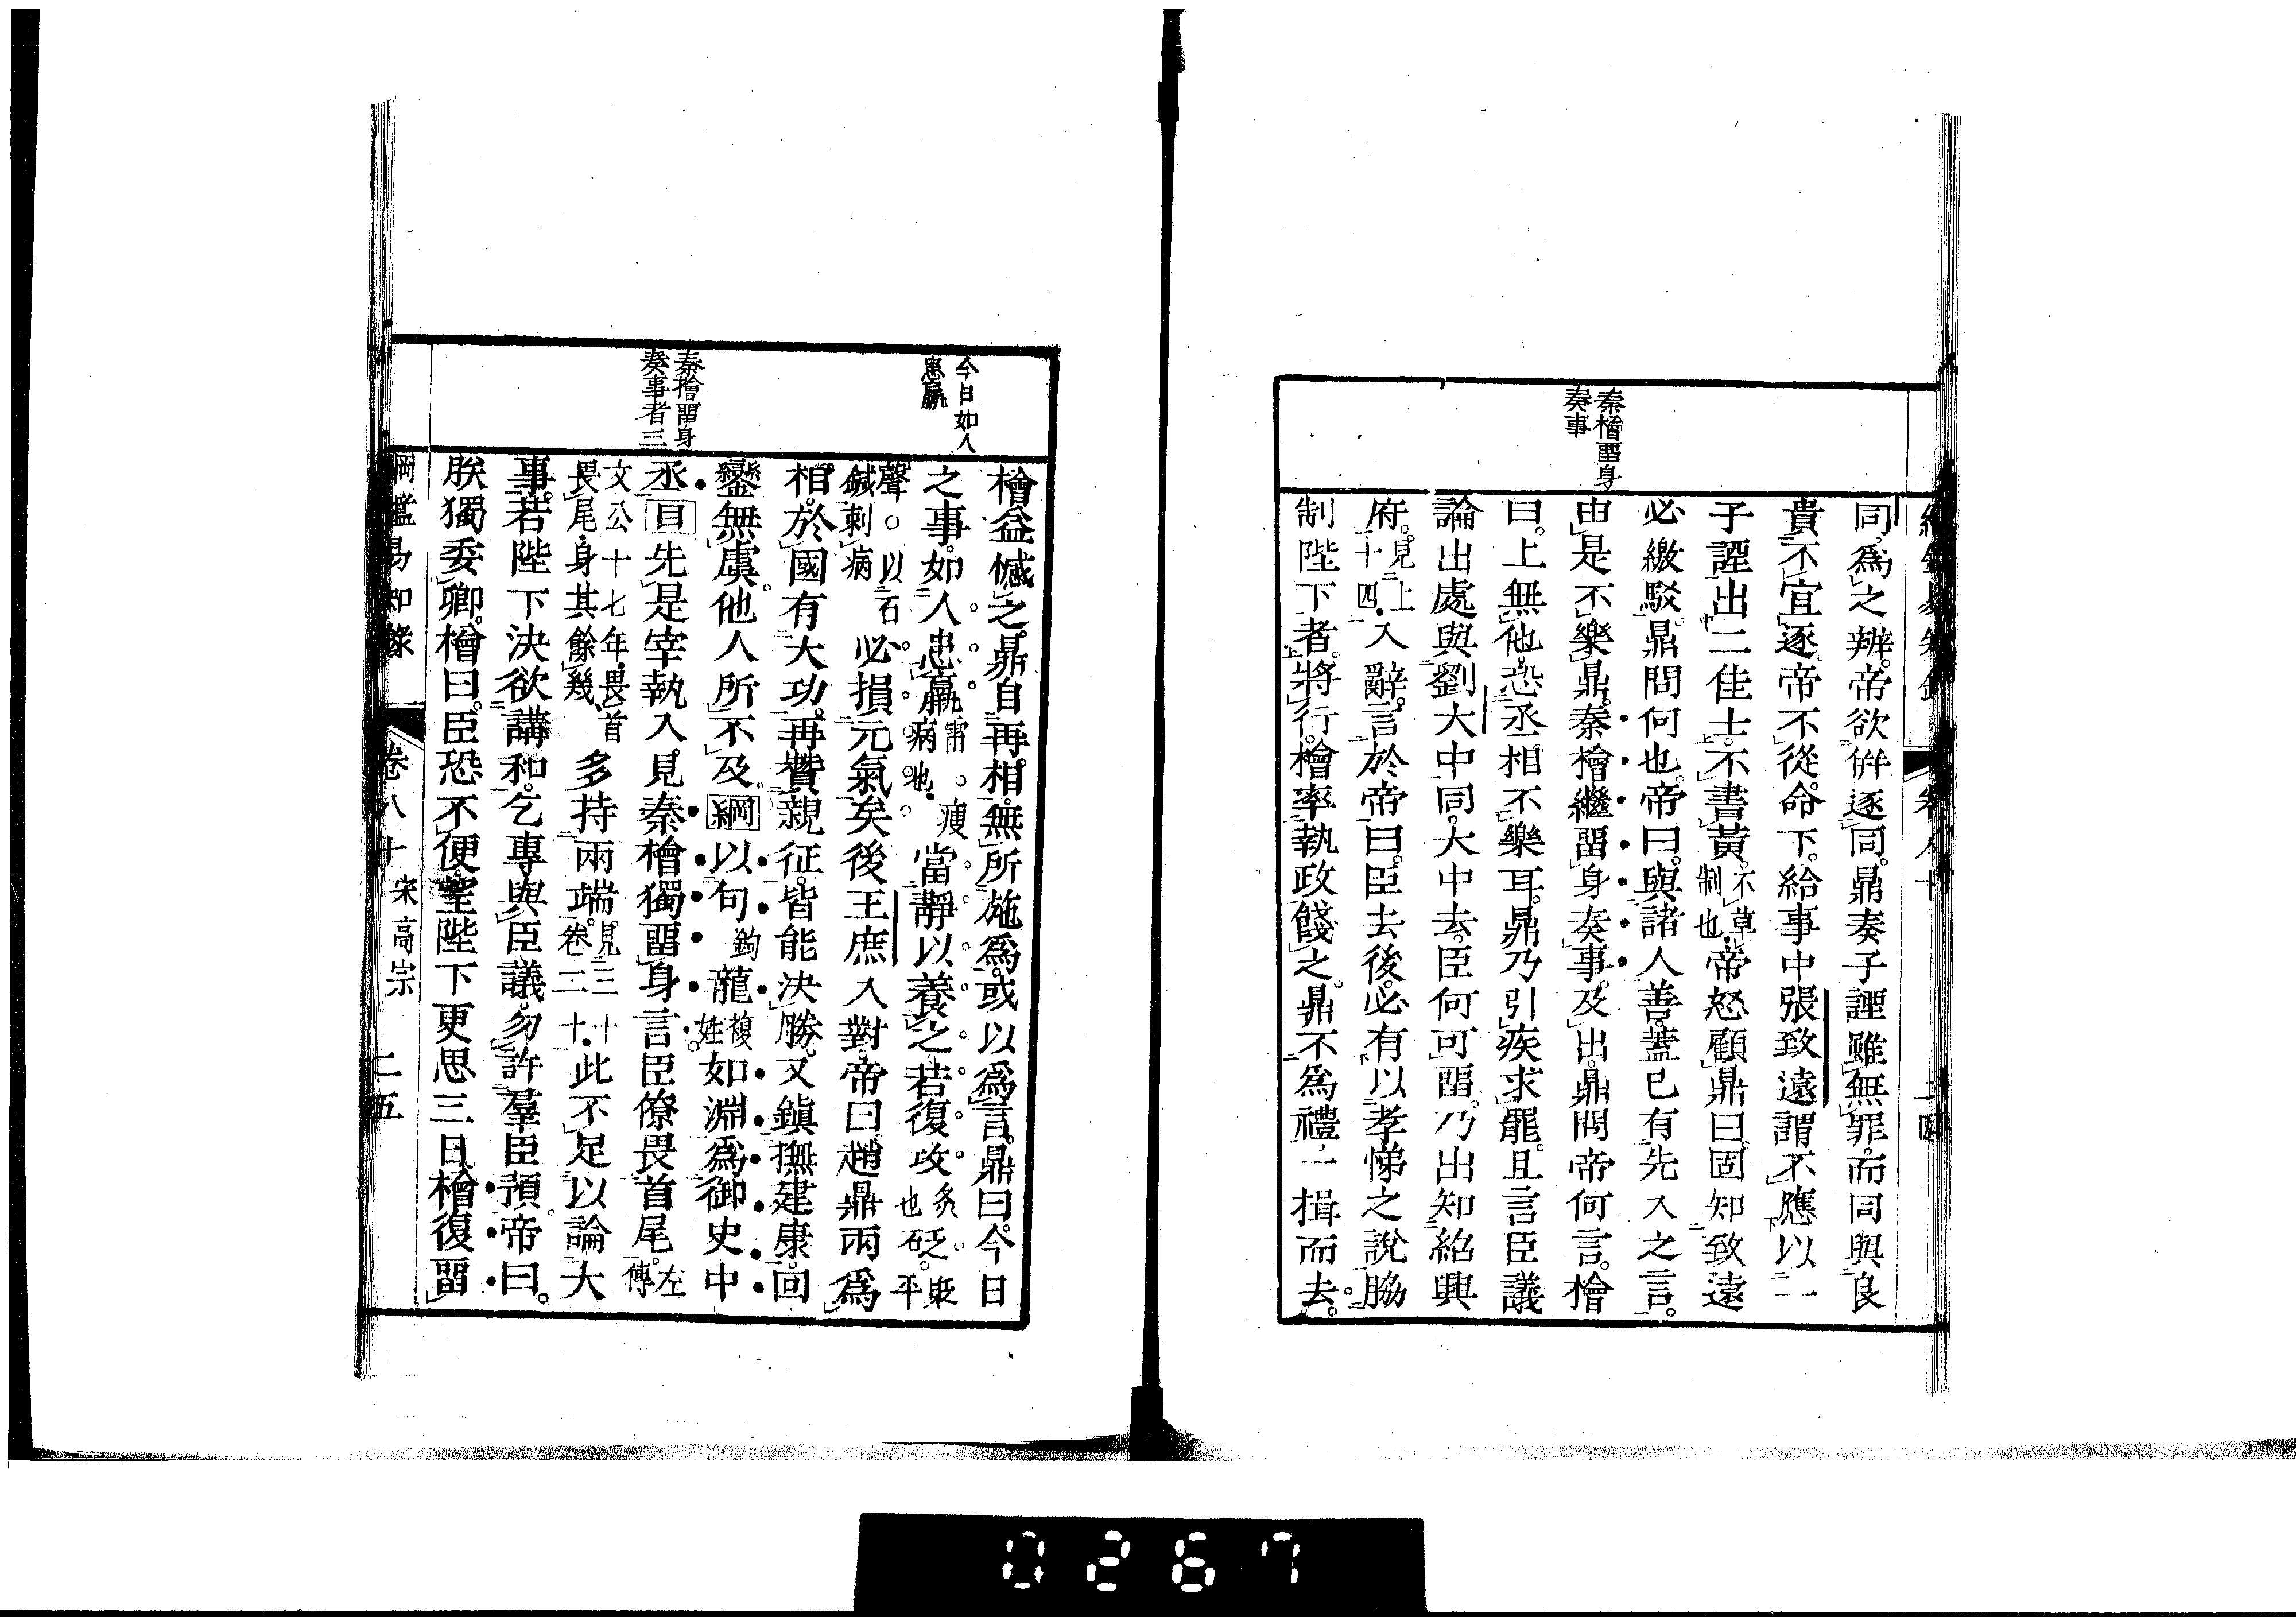 綱鑑易知錄 卷八十 二四
秦檜畱身
奏事
同爲之辨。帝欲併逐同。鼎奏子諲雖無罪。而同與良
貴不宜逐。帝不從。命下。給事中張致遠謂不應以一
子諲出二佳士。不書黃。不草制也。帝怒顧鼎曰。固知致遠
必繳駁。鼎問何也。帝曰。與諸人善。蓋已有先入之言。
由是不樂鼎。秦檜繼畱身奏事。及出。鼎問帝何言。檜
曰。上無他。恐丞相不樂耳。鼎乃引疾求罷。且言臣議
論出處與劉大中同。大中去。臣何可畱。乃出知紹興
府。見上十四。入辭。言於帝曰。臣去後。必有以孝悌之說脇
制陛下者。將行。檜率執政餞之。鼎不爲禮。一揖而去。
今日如人
患羸
秦檜畱身
奏事者三
檜益憾之。鼎自再相。無所施爲。或以爲言。鼎曰。今日
之事。如人患羸。病也。瘦當靜以養之。若復攻炙也砭。平
聲。以石鍼刺病必損元氣矣。後王庶入對。帝曰。趙鼎兩爲
相。於國有大功。再贊親征。皆能決勝。又鎮撫建康。回
鑾無虞。他人所不及。綱以句鉤龍複姓。如淵爲御史中
丞。目先是宰執入見。秦檜獨畱身言。臣僚畏首尾。左傳
文公十七年。畏首畏尾。身其餘幾多持兩端。見三十卷二十。此不足以論大
事。若陛下決欲講和。乞專與臣議。勿許羣臣預。帝曰。
朕獨委卿。檜曰。臣恐不便。望陛下更思三日。檜復畱
綱鑑易知錄 卷八十 宋高宗 二五
0267